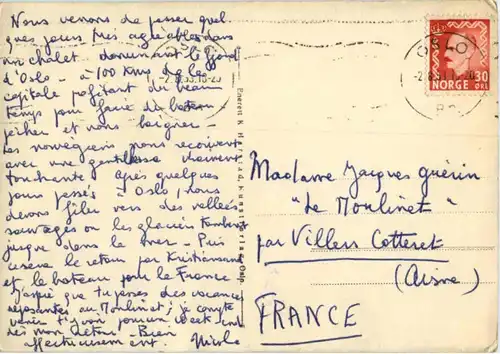 Nous venons de passer quel
ques jours très agréables dans
un chalet dominant le fjord
d'Oslo - à 100 kms de la
capitale profitant du beau
temps pour faire du bateau
pêcher et nous baigner.
Les norvégiens nous reçoivent
avec une gentillesse vraiment
touchante après quelques
jours passés à Oslo, nous
devons filer vers des vallées
sauvages où les glaciers tombent
jusque dans la mer - Puis
ce sera le retour par Kristiansand
et le bateau pour la France
J'espère que tu passes des vacances
reposantes au Moulinet; je compte
venir t'y voir pour un week-end
dès mon retour - Bien
affectueusement. Nicole
Enerett K. Harstad, Kunstforlag, Oslo.
OSLO
NORGE 30
ØRE
Madame Jacques Guérin
"Le Moulinet"
par Villers Cotteret
(Aisne)
FRANCE